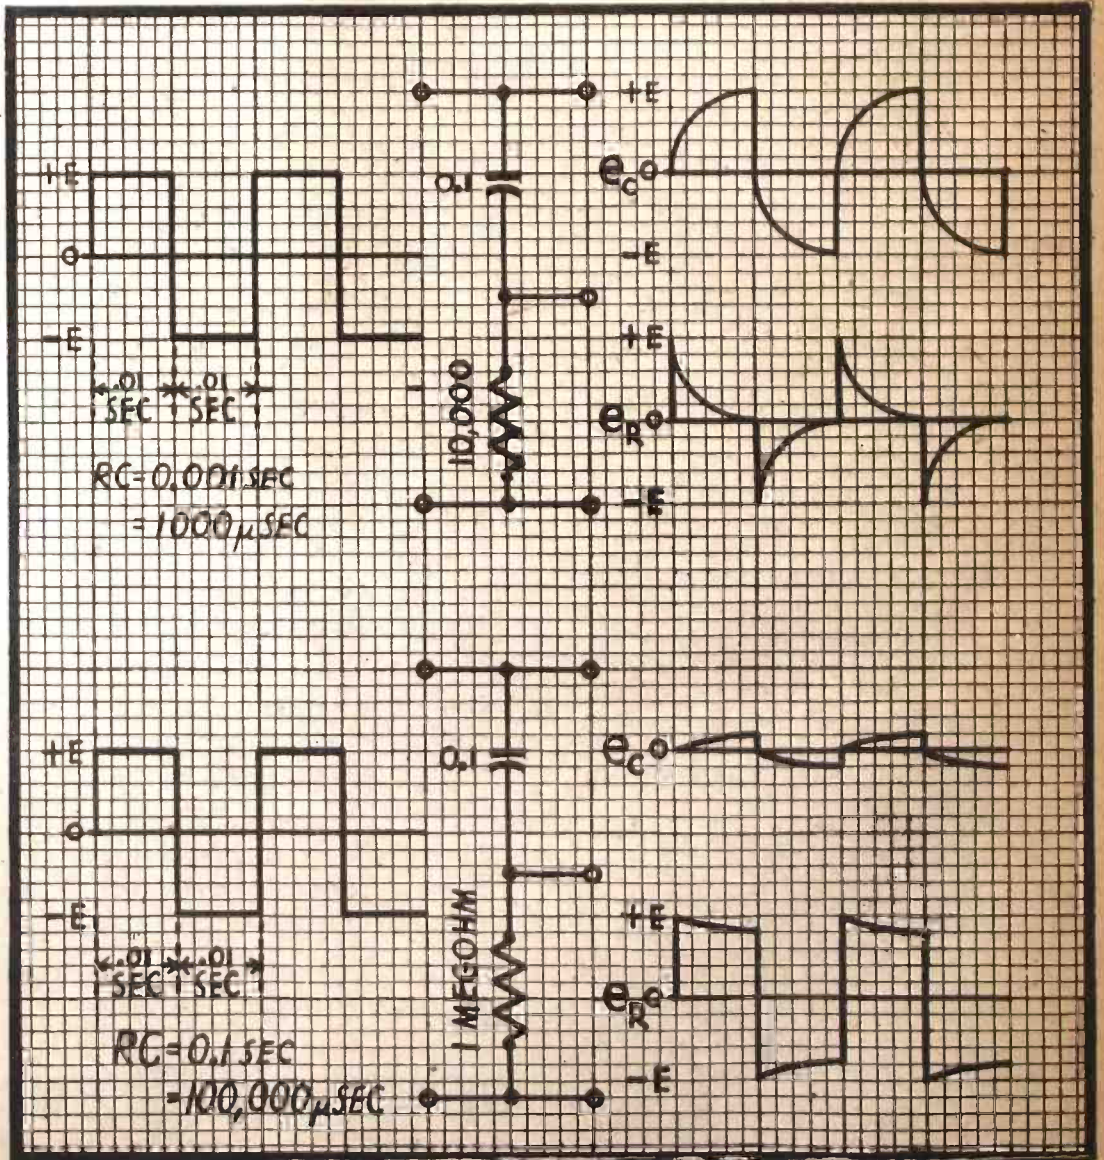 +E
O
-E
.01 SEC
.01 SEC
RC=0.001 SEC
=1000μSEC
0.1
10,000
+E
eC O
-E
+E
eR O
-E
+E
O
-E
.01 SEC
.01 SEC
RC=0.1 SEC
=100,000μSEC
0.1
1 MEGOHM
eC O
+E
eR O
-E